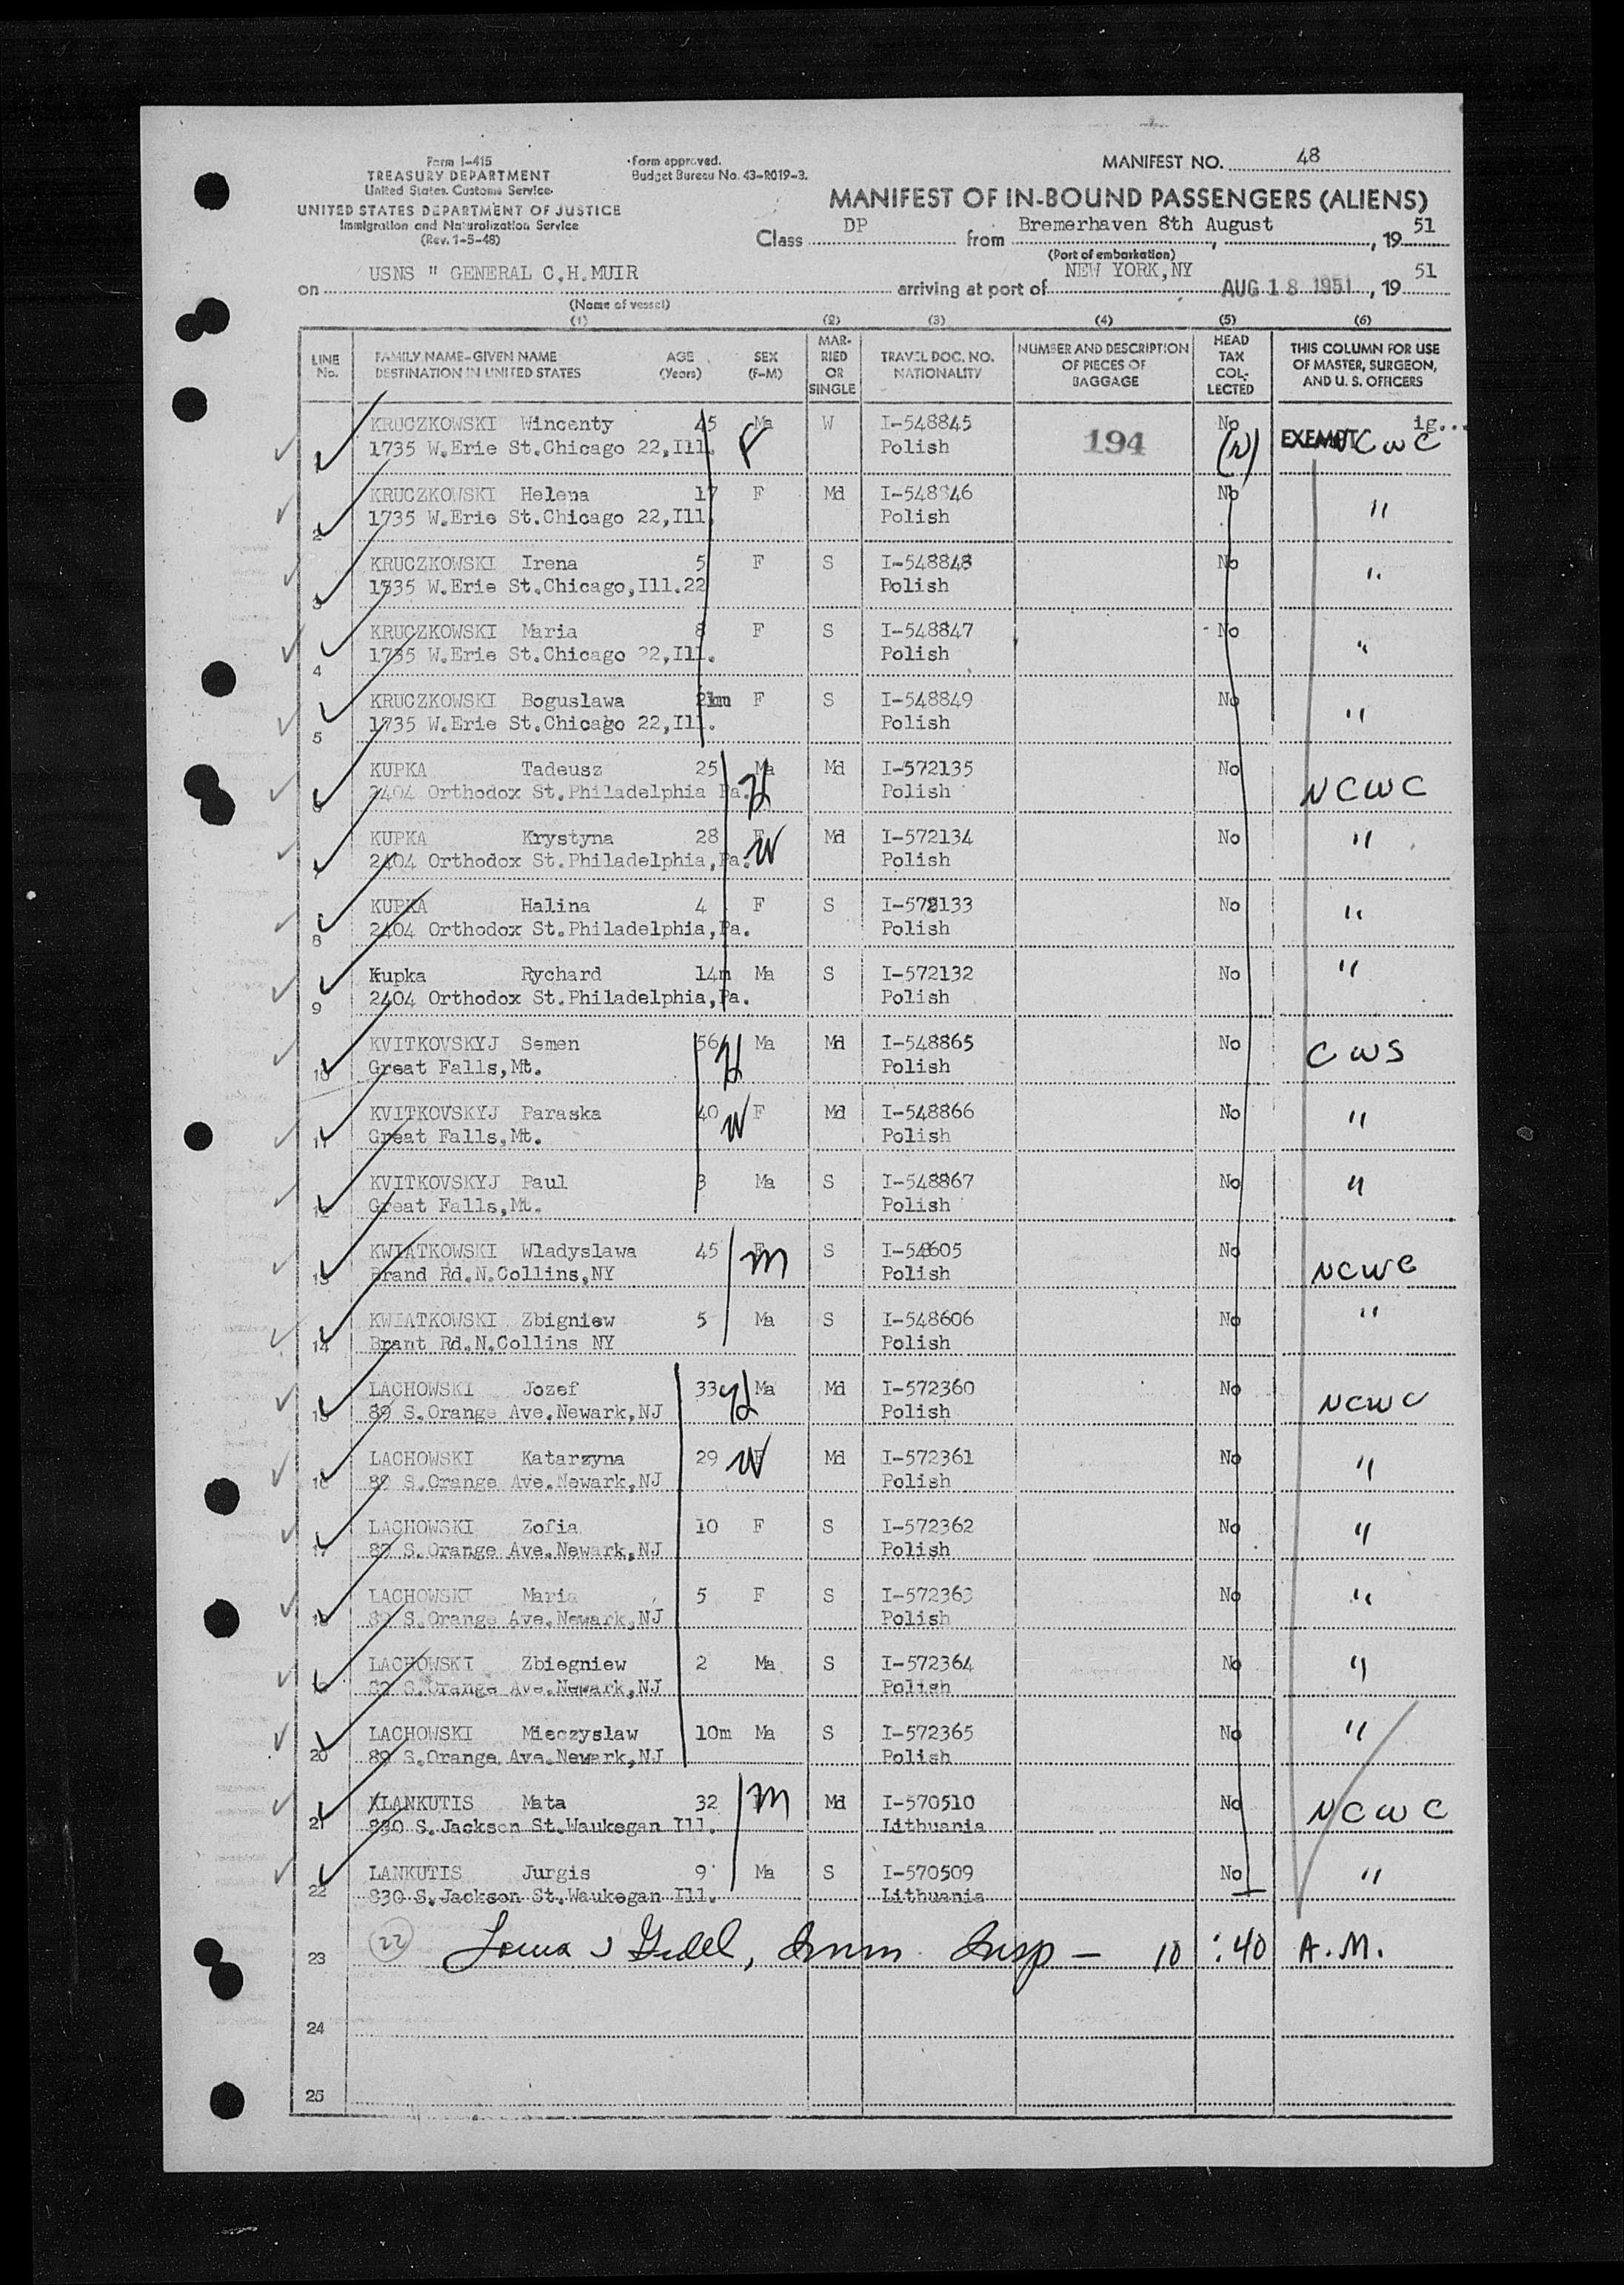 Form I-415
TREASURY DEPARTMENT
United States Customs Service
UNITED STATES DEPARTMENT OF JUSTICE
Immigration and Naturalization Service
(Rev. 1-5-48)
Form approved.
Budget Bureau No. 43-R019-3.
MANIFEST NO. 48
MANIFEST OF IN-BOUND PASSENGERS (ALIENS)
Class DP from Bremerhaven 8th August, 19 51
(Port of embarkation)
on USNS " GENERAL C.H.MUIR arriving at port of NEW YORK,NY AUG 18 1951, 19 51
(Name of vessel)
(1) (2) (3) (4) (5) (6)
LINE No. FAMILY NAME-GIVEN NAME DESTINATION IN UNITED STATES AGE (Years) SEX (F-M) MARRIED OR SINGLE TRAVEL DOC. NO. NATIONALITY NUMBER AND DESCRIPTION OF PIECES OF BAGGAGE HEAD TAX COLLECTED THIS COLUMN FOR USE OF MASTER, SURGEON, AND U. S. OFFICERS
KRUCZKOWSKI Wincenty 45 Ma W I-548845 No ig...
1 1735 W.Erie St.Chicago 22,Ill. F Polish 194 (N) EXEMPT NCWC
KRUCZKOWSKI Helena 17 F Md I-548846 No "
2 1735 W.Erie St.Chicago 22,Ill. Polish
KRUCZKOWSKI Irena 5 F S I-548848 No "
3 1535 W.Erie St.Chicago,Ill.22 Polish
KRUCZKOWSKI Maria 8 F S I-548847 No "
4 1735 W.Erie St.Chicago 22,Ill. Polish
KRUCZKOWSKI Boguslawa F S I-548849 No "
5 1735 W.Erie St.Chicago 22,Ill. Polish
KUPKA Tadeusz 25 Ma Md I-572135 No
6 2404 Orthodox St.Philadelphia Pa. H Polish NCWC
KUPKA Krystyna 28 F Md I-572134 No "
7 2404 Orthodox St.Philadelphia,Pa. W Polish
KUPKA Halina 4 F S I-572133 No "
8 2404 Orthodox St.Philadelphia,Pa. Polish
Kupka Rychard 14m Ma S I-572132 No "
9 2404 Orthodox St.Philadelphia,Pa. Polish
KVITKOVSKYJ Semen 56 H Ma Md I-548865 No CWS
10 Great Falls,Mt. Polish
KVITKOVSKYJ Paraska 40 W F Md I-548866 No "
11 Great Falls,Mt. Polish
KVITKOVSKYJ Paul 3 Ma S I-548867 No "
12 Great Falls,Mt. Polish
KWIATKOWSKI Wladyslawa 45 F M S I-548605 No
13 Brand Rd.N.Collins,NY Polish NCWC
KWIATKOWSKI Zbigniew 5 Ma S I-548606 No "
14 Brant Rd.N.Collins NY Polish
LACHOWSKI Jozef 33 H Ma Md I-572360 No NCWC
15 89 S.Orange Ave.Newark,NJ Polish
LACHOWSKI Katarzyna 29 W F Md I-572361 No "
16 89 S.Orange Ave.Newark,NJ Polish
LACHOWSKI Zofia 10 F S I-572362 No "
17 89 S.Orange Ave.Newark,NJ Polish
LACHOWSKI Maria 5 F S I-572363 No "
18 89 S.Orange Ave.Newark,NJ Polish
LACHOWSKI Zbiegniew 2 Ma S I-572364 No "
19 89 S.Orange Ave.Newark,NJ Polish
LACHOWSKI Mieczyslaw 10m Ma S I-572365 No "
20 89 S.Orange Ave.Newark,NJ Polish
LANKUTIS Mata 32 M Md I-570510 No NCWC
21 830 S.Jackson St.Waukegan Ill. Lithuania
LANKUTIS Jurgis 9 Ma S I-570509 No "
22 830 S.Jackson St.Waukegan Ill. Lithuania
23 (22) Imm. Insp - 10:40 A.M.
24
25